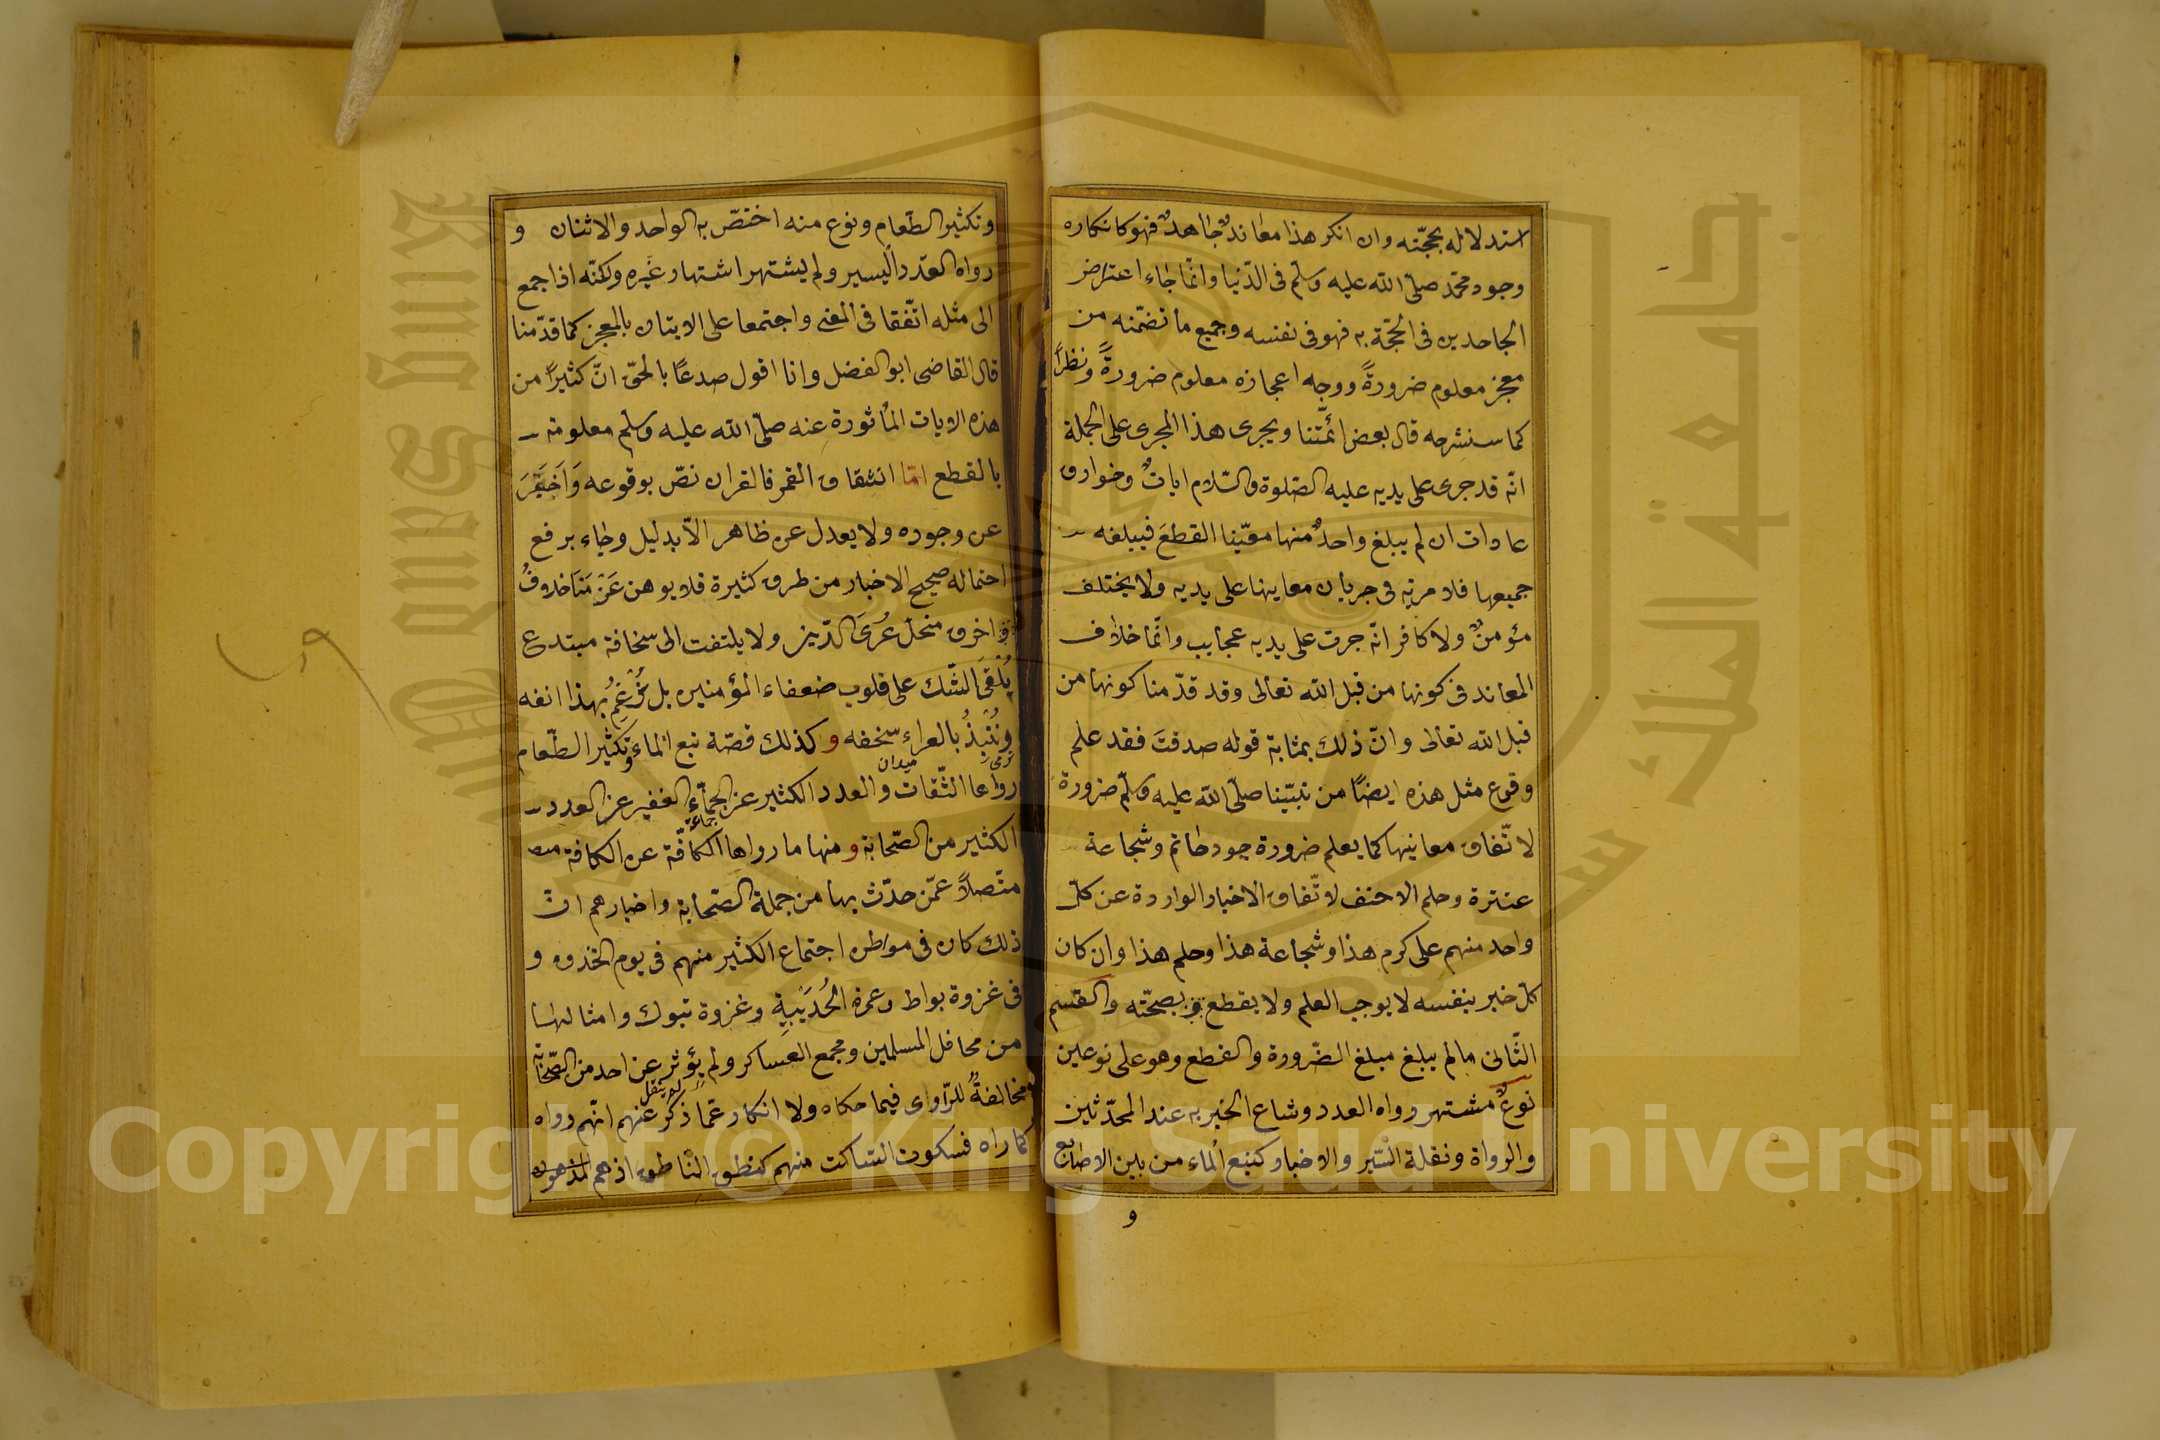 استدلاله بحجّته وان انكر هذا معاندٌ جاهدٌ فهو كانكاره
وجود محمّد صلّى الله عليه وسلّم فى الدّنيا وانّما جاء اعتراض
الجاحدين فى الحجّة به فهو فى نفسه وجميع ما تضمّنه من
معجز معلوم ضرورةً ووجه اعجازه معلوم ضرورةً ونظرًا
كما سنشرحه قال بعض ائمّتنا ويجرى هذا المجرى على الجملة
انّه قد جرى على يديه عليه الصّلوة والسّلام اياتٌ وخوارق
عادات ان لم يبلغ واحدٌ منها معيّنا القطعَ فيبلغه
جميعها فلا مرية فى جريان معاينها على يديه ولا يختلف
مؤمنٌ ولا كافر انّه جرت على يديه عجايب وانّما خلاف
المعاند فى كونها من قبل الله تعالى وقد قدّمنا كونها من
قبل الله تعالى وانّ ذلك بمثابة قوله صدقتَ فقد علم
وقوع مثل هذه ايضًا من نبيّنا صلّى الله عليه وسلّم ضرورة
لاتّفاق معانيها كما يعلم ضرورة جود حاتم وشجاعة
عنترة وحلم الاحنف لاتّفاق الاخبار الواردة عن كلّ
واحد منهم على كرم هذا وشجاعة هذا وحلم هذا وان كان
كلّ خبر بنفسه لا يوجب العلم ولا يقطع بصحّته والقسم
الثّانى مالم يبلغ مبلغ الضّرورة والقطع وهو على نوعين
نوعٌ مشتهر رواه العدد وشاع الخبر به عند المحدّثين
والرواة ونقلة السّير والاخبار كنبع الماء من بين الاصابع
و
وتكثير الطّعام ونوع منه اختصّ به الواحد والاثنان و
رواه العدد اليسير ولم يشتهر اشتهار غيره ولكنّه اذا جمع
الى مثله اتّفقا فى المعنى واجتمعا على الايتان بالمعجز كما قدّمنا
قال القاضى ابو الفضل وانا اقول صدعًا بالحقّ انّ كثيرًا من
هذه الايات المأثورة عنه صلّى الله عليه وسلّم معلومة
بالقطع امّا انشقاق القمر فالقران نصّ بوقوعه وَاَخبَرَ
عن وجوده ولا يعدل عن ظاهر الاّ بدليل وجاء برفع
احتماله صحيح الاخبار من طرق كثيرة فلا يوهن عَزْمَنَا خلافُ
اخرق منحلّ عُرَى الدّين ولا يلتفت الى سخافة مبتدع
يُلْقى الشّك على قلوب ضعفاء المؤمنين بل نُرْغِمُ بهذا انفه
ونُنْبِذُ بالعراء سخفه وكذلك قصّة نبع الماء وتكثير الطّعام
نرمى ميدان
رواها الثّقات والعدد الكثير عن الجمّاء الغفير عن العدد
جماعة
الكثير من الصّحابة ومنها ما رواها الكافّة عن الكافة
متّصلاً عمّن حدّث بها من جملة الصّحابة واخبارهم انّ
ذلك كان فى مواطن اجتماع الكثير منهم فى يوم الخندق و
فى غزوة بواط وعمرة الحُدَيْبِيَةِ وغزوة تبوك وامثالها
من محافل المسلمين ومجمع العساكر ولم يؤثر عن احد من الصّحابة
لم ينقل
مخالفةٌ للرّاوى فيما حكاه ولا انكار عمّا ذُكر عنهم انّهم رواه
كما راه فسكوت السّاكت منهم كنطق النّاطق اذ هم المنزهون